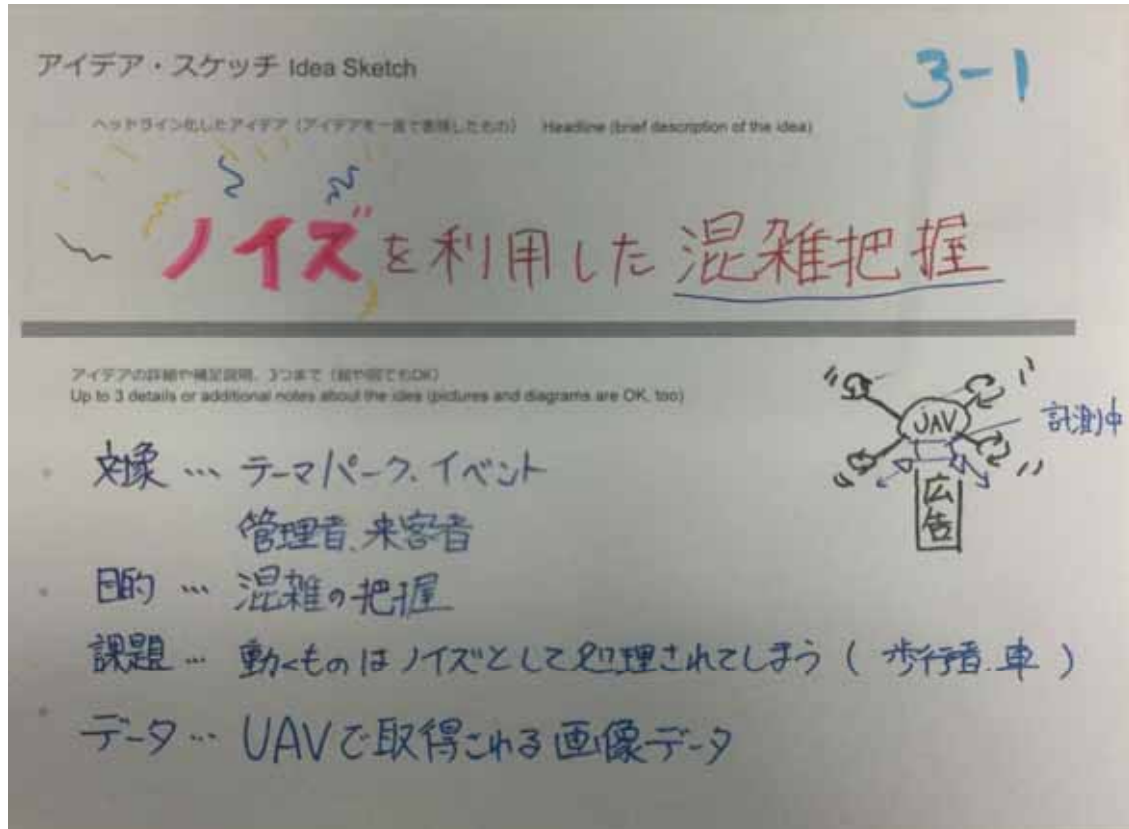 アイデア・スケッチ Idea Sketch
3-1
ヘッドライン化したアイデア（アイデアを一言で表現したもの） Headline (brief description of the idea)
ノイズを利用した混雑把握
アイデアの詳細や補足説明、3つまで（絵や図でもOK）
Up to 3 details or additional notes about the idea (pictures and diagrams are OK, too)
UAV
計測中
広告
対象…テーマパーク、イベント
管理者、来客者
目的…混雑の把握
課題…動くものはノイズとして処理されてしまう（歩行者、車）
データ…UAVで取得される画像データ